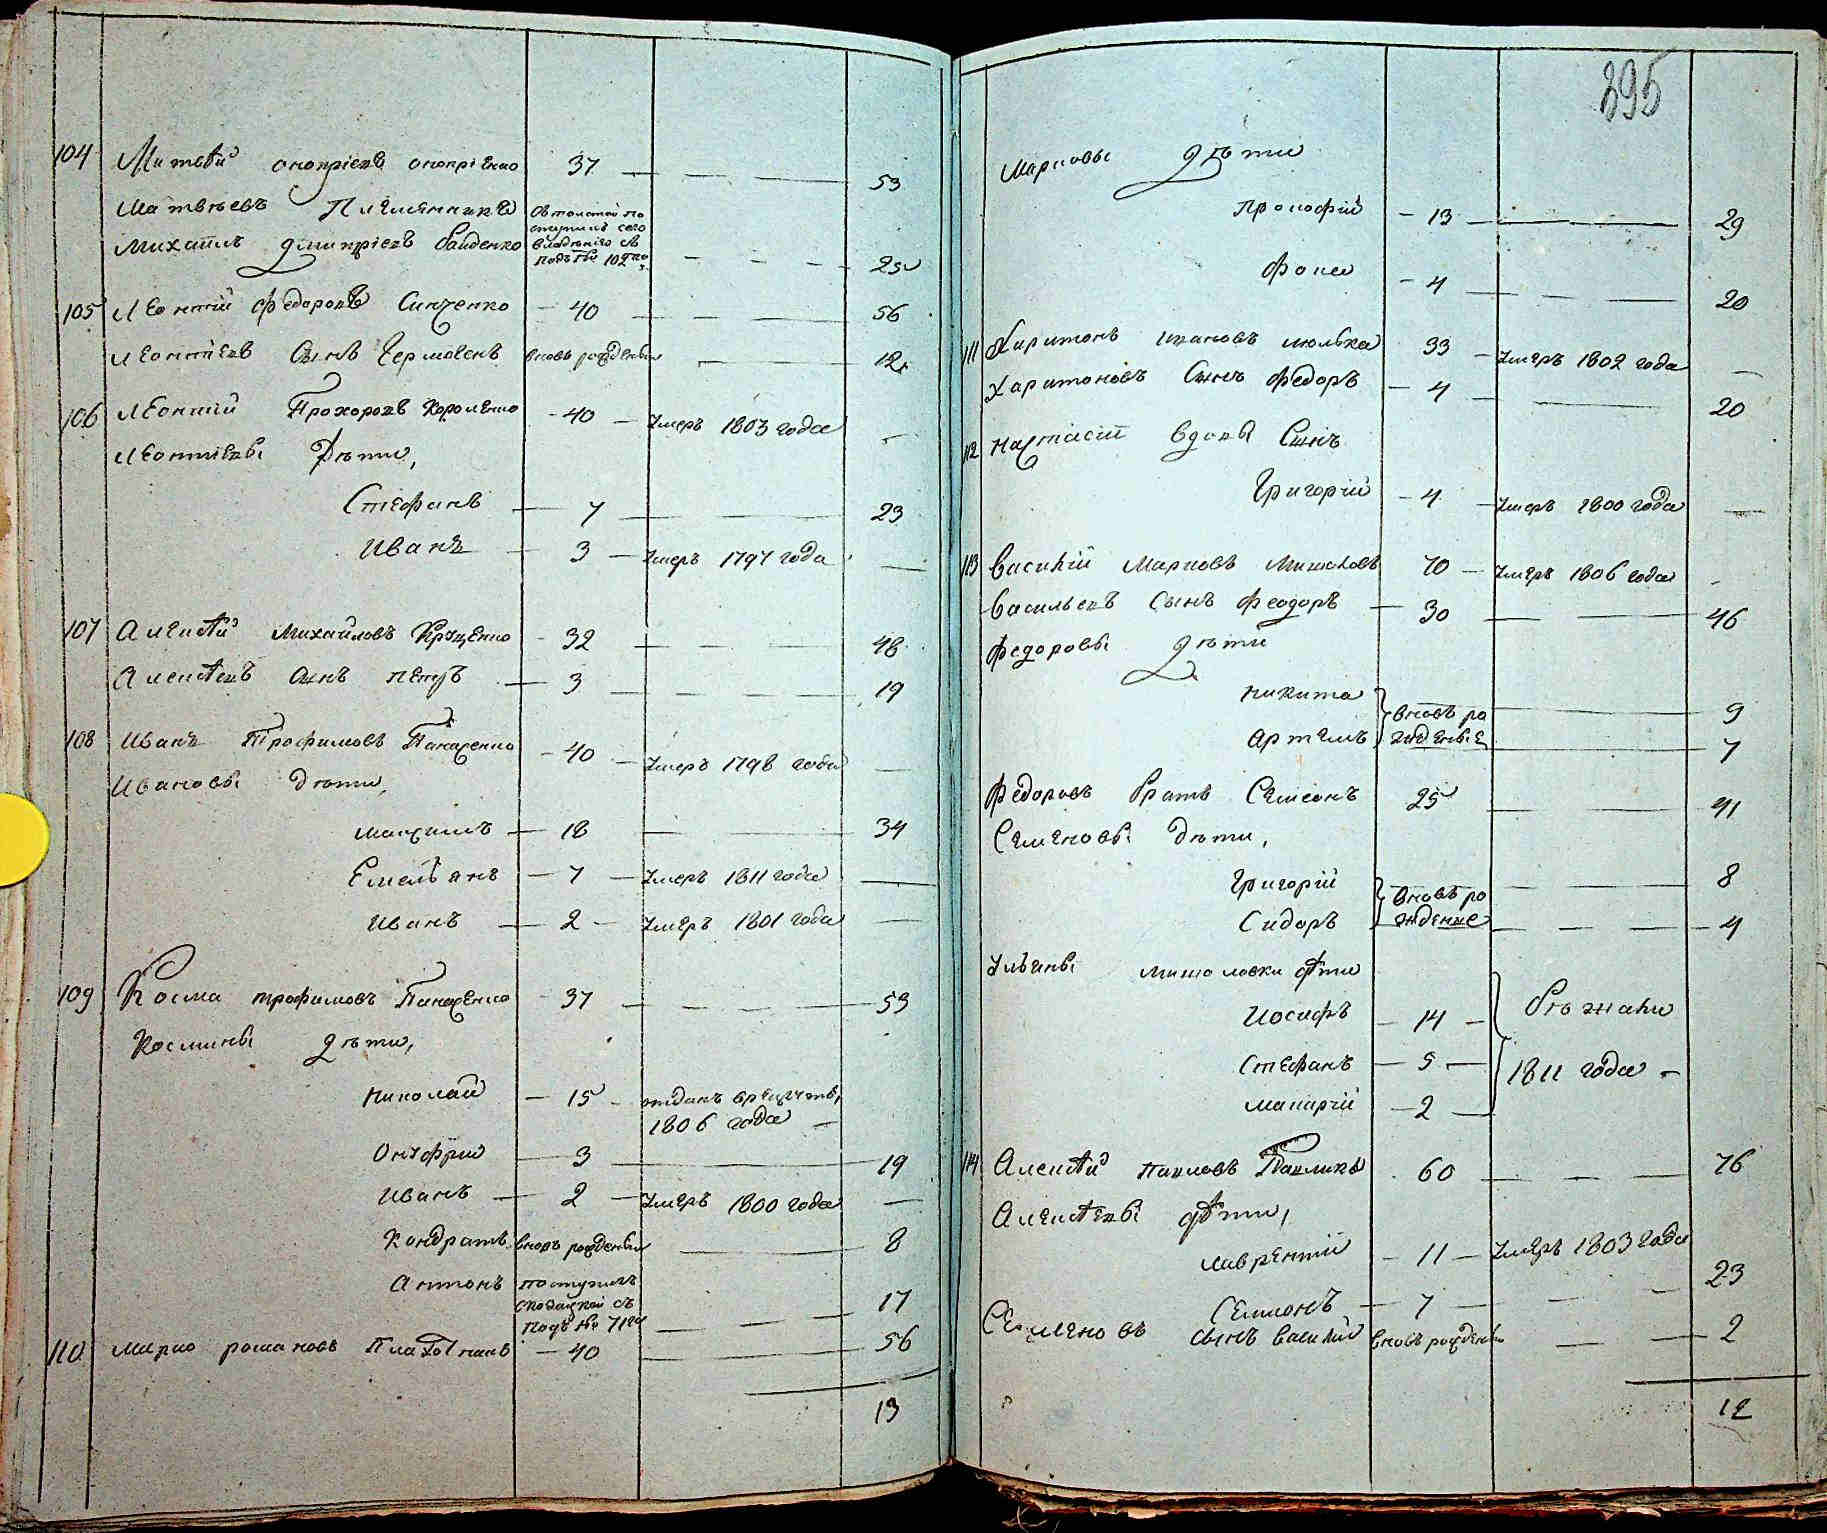 104 Матвѣй Оноприевъ Оноприенко 37 — — — 53
Матвѣевъ Племянникъ
Михаилъ Дмитриевъ Байденко подъ № 102 — — — 25
105 Леонтий Федоровъ Синченко — 40 — — — 56
Леонтиевъ Сынъ Ермогенъ вновь рожденный — 12
106 Леонтий Прохоровъ Короленко — 40 — Умеръ 1803 года —
Леонтиевы Дѣти,
Стефанъ — 7 — 23
Иванъ — 3 — Умеръ 1797 года —
107 Алексѣй Михайловъ Крущенко 32 — — — 48
Алексѣевъ сынъ Петръ — 3 — — — 19
108 Иванъ Трофимовъ Панасенко — 40 — Умеръ 1798 года —
Ивановы Дѣти,
Максимъ — 18 — 34
Емельянъ — 7 — Умеръ 1811 года —
Иванъ — 2 — Умеръ 1801 года —
109 Косма Трофимовъ Панасенко — 37 — — — 53
Космины дѣти,
Николай — 15 — отданъ врекруты
1806 года —
Онуфрий — 3 — 19
Иванъ — 2 — Умеръ 1800 года —
Кондратъ вновь рожденный — 8
Антонъ поступилъ
съ
подъ № 71го — — — 17
110 Марко Романовъ — 40 — 56
13
395
Марковы дѣти
Прокофий — 13 — 29
Фока — 4 — — — 20
111 Харитонъ Ивановъ Люлька 33 — Умеръ 1802 года —
Харитоновъ Сынъ Федоръ — 4 — 20
112 Настасии вдовы Сынъ
Григорий — 4 — Умеръ 1800 года —
113 Василий Марковъ 70 — Умеръ 1806 года —
Васильевъ Сынъ Феодоръ — 30 — 46
Федоровы дѣти
Никита вновь ро — 9
Артемъ жденые — 7
Федоровъ братъ Семенъ 25 — 41
Семеновы дѣти,
Григорий вновь ро — 8
Сидоръ жденые — — — 4
Ульяны дѣти
Иосифъ — 14 — бѣжали
Стефанъ — 5 — 1811 года —
Макарий — 2 —
114 Алексѣй Павловъ Павликъ 60 — — — 76
Алексѣевы дѣти,
Лаврентий — 11 — Умеръ 1803 года
Семионъ — 7 — — — 23
Семеновъ сынъ Василий вновь рожденный — 2
12